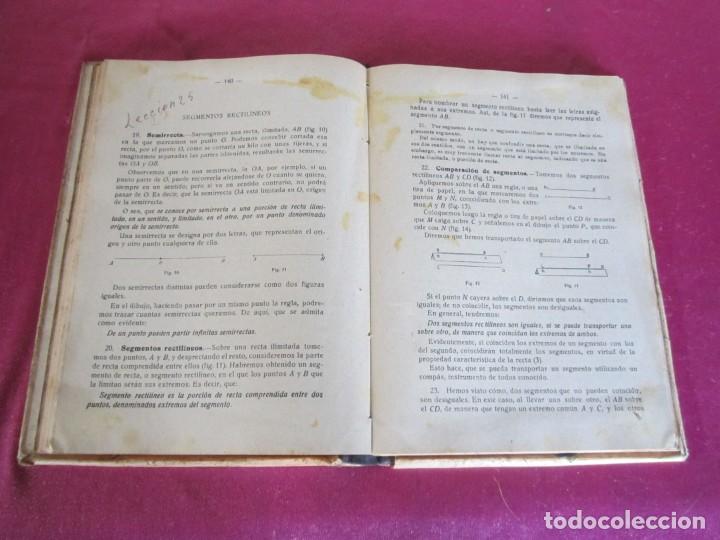 — 140 —
Leccion 25
SEGMENTOS RECTILÍNEOS
19. Semirrecta.—Supongamos una recta, ilimitada, AB (fig. 10)
en la que marcamos un punto O. Podemos concebir cortada esa
recta, por el punto O, como se cortaría un hilo con unas tijeras, y si
imaginamos separadas las partes obtenidas, resultarán las semirrec-
tas OA y OB.
Observemos que en una semirrecta, la OA, por ejemplo, si un
punto parte de O, puede recorrerla alejándose de O cuanto se quiera,
siempre en un sentido; pero si va en sentido contrario, no podrá
pasar de O. Es decir, que la semirrecta OA está limitada en O, origen
de la semirrecta.
O sea, que se conoce por semirrecta a una porción de recta ilimi-
tada, en un sentido, y limitada, en el otro, por un punto denominado
origen de la semirrecta.
Una semirrecta se designa por dos letras, que representan el ori-
gen y otro punto cualquiera de ella.
A O B A B
Fig. 10 Fig. 11
Dos semirrectas distintas pueden considerarse como dos figuras
iguales.
En el dibujo, haciendo pasar por un mismo punto la regla, podre-
mos trazar cuantas semirrectas queremos. De aquí, que se admita
como evidente:
De un punto pueden partir infinitas semirrectas.
20. Segmentos rectilíneos.—Sobre una recta ilimitada tome-
mos dos puntos, A y B, y despreciando el resto, consideremos la parte
de recta comprendida entre ellos (fig. 11). Habremos obtenido un seg-
mento de recta, o segmento rectilíneo, en el que los puntos A y B que
la limitan serán sus extremos. Es decir:
Segmento rectilíneo es la porción de recta comprendida entre dos
puntos, denominados extremos del segmento.
— 141 —
Para nombrar un segmento rectilíneo basta leer las letras asig-
nadas a sus extremos. Así, de la fig. 11 diremos que representa el
segmento AB.
21. Por segmento de recta o segmento rectilíneo se acostumbra decir sim-
plemente segmento.
22. Comparación de segmentos.—Tomemos dos segmentos
rectilíneos AB y CD (fig. 12).
Apliquemos sobre el AB una regla, o una
tira de papel, en la que marcaremos dos
puntos M y N, coincidiendo con los extre-
mos A y B (fig. 13).
Fig. 12
Coloquemos luego la regla o tira de papel sobre el CD de manera
que M caiga sobre C y señalemos en el dibujo el punto P, que coin-
cide con N (fig. 14).
Diremos que hemos transportado el segmento AB sobre el CD.
Fig. 13 Fig. 14
Si el punto N cayera sobre el D, diríamos que esos segmentos son
iguales; de no coincidir, los segmentos son desiguales.
En general, tendremos:
Dos segmentos rectilíneos son iguales, si se puede transportar uno
sobre otro, de manera que coincidan los extremos de ambos.
Evidentemente, si coinciden los extremos de un segmento con los
del segundo, coincidirán totalmente los segmentos, en virtud de la
propiedad característica de la recta (3).
Esto hace, que se pueda transportar un segmento utilizando un
compás, instrumento conocido de todos.
23. Hemos visto cómo, dos segmentos que no pueden coincidir,
son desiguales. En este caso, al llevar uno sobre otro, el AB sobre
el CD, de manera que tengan un extremo común A y C, y los otros
todocoleccion
todocoleccion.net